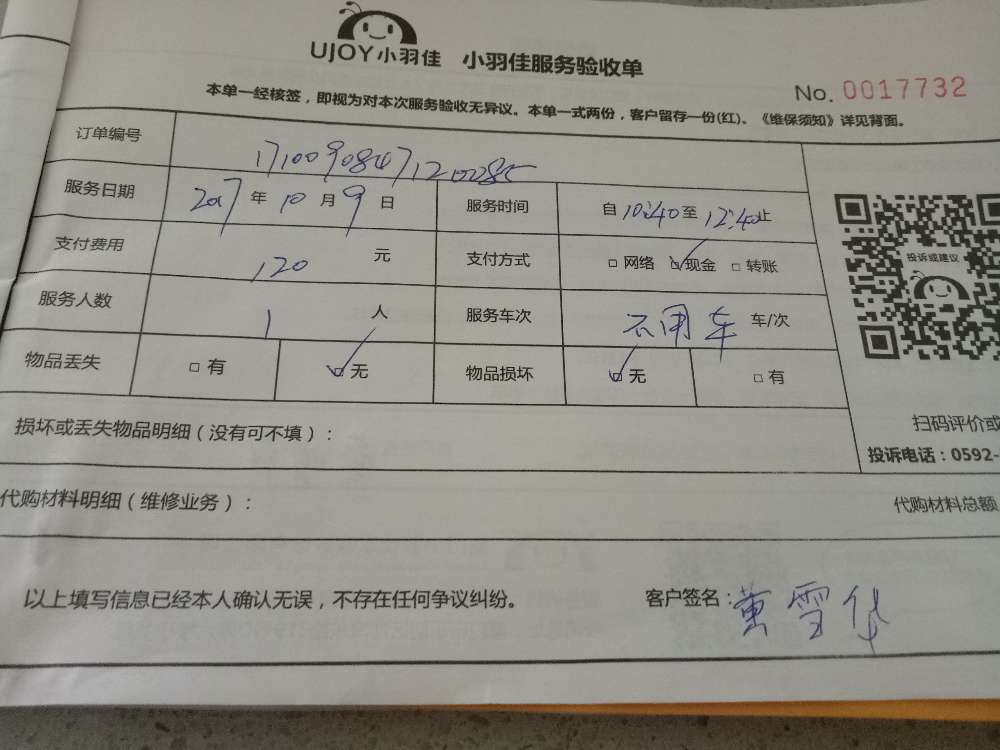 UJOY小羽佳 小羽佳服务验收单
No. 0017732
本单一经核签，即视为对本次服务验收无异议。本单一式两份，客户留存一份(红)。《维保须知》详见背面。
订单编号 17100908471200285
服务日期 2017 年 10 月 9 日 服务时间 自 10:40 至 12:40 止
支付费用 120 元 支付方式 □ 网络 ☑ 现金 □ 转账
投诉或建议
服务人数 1 人 服务车次 不用车 车/次
物品丢失 □ 有 ☑ 无 物品损坏 ☑ 无 □ 有
扫码评价或
损坏或丢失物品明细（没有可不填）：
投诉电话：0592-
代购材料明细（维修业务）： 代购材料总额
以上填写信息已经本人确认无误，不存在任何争议纠纷。 客户签名：黄雪华